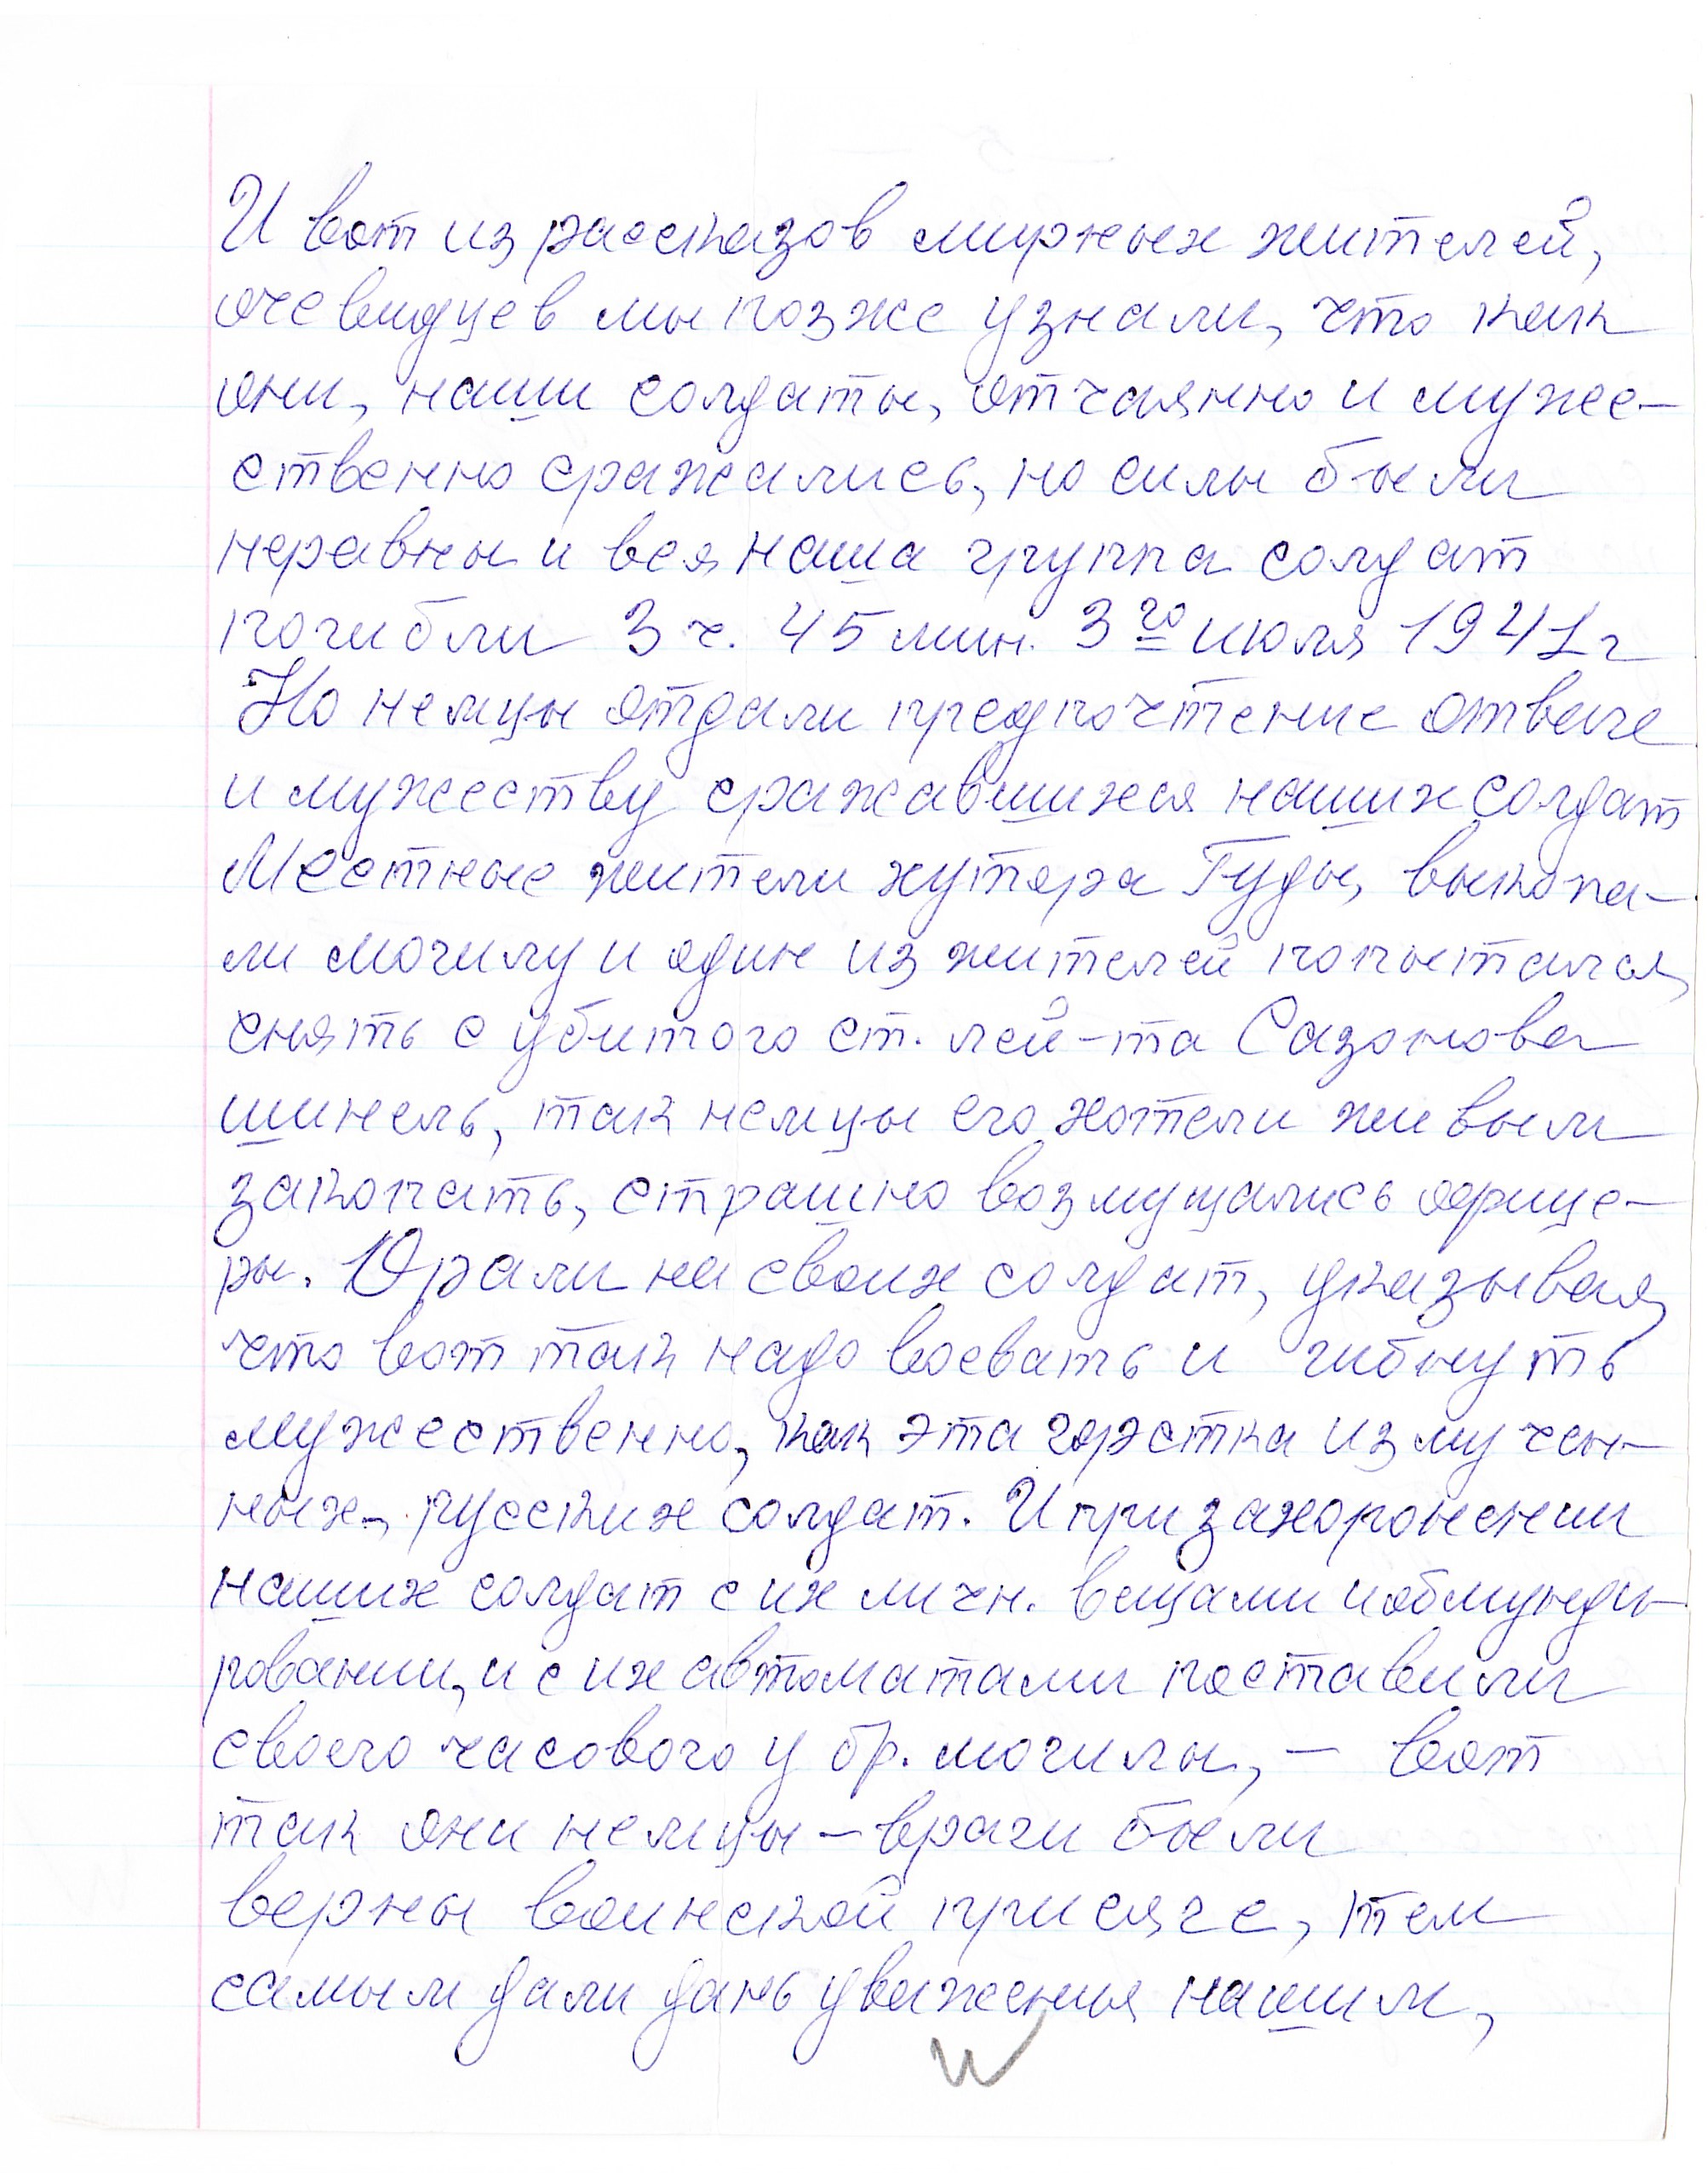 И вот из рассказов мирных жителей,
очевидцев мы позже узнали, что как
они, наши солдаты, отчаянно и муже-
ственно сражались, но силы были
неравны и вся наша группа солдат
погибли 3 ч. 45 мин. 3го июля 1941 г
Но немцы отдали предпочтение отваге
и мужеству сражавшихся наших солдат
Местные жители хутора Гуды, выкопа-
ли могилу и один из жителей попытался
снять с убитого ст. лей-та Сазонова
шинель, так немцы его хотели живым
закопать, страшно возмущались офице-
ры. Орали на своих солдат, указывая,
что вот так надо воевать и гибнуть
мужественно, как эта горстка измучен-
ных, русских солдат. И при захоронении
наших солдат с их личн. вещами и обмунди-
ровании, и с их автоматами поставили
своего часового у бр. могилы, – вот
так они немцы – враги были
верны воинской присяге, тем
самым дали дань уважения нашим,